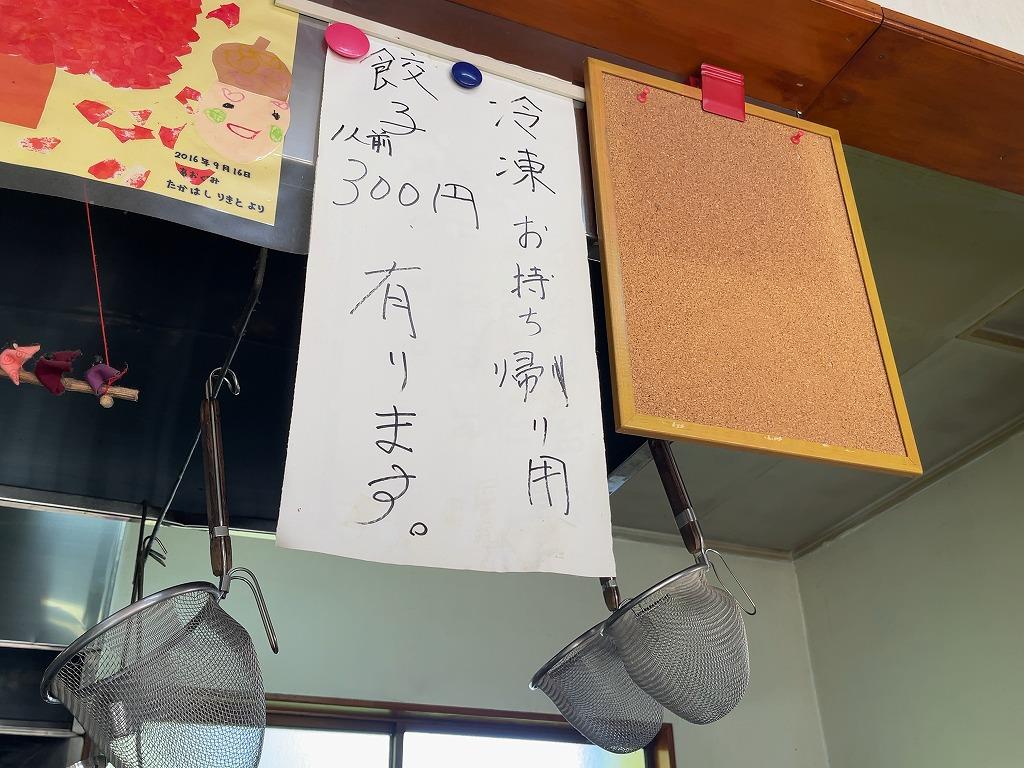 冷凍お持ち帰り用
餃子
1人前
300円
有ります。
2016年9月16日
あおぐみ
たかはしりきとより